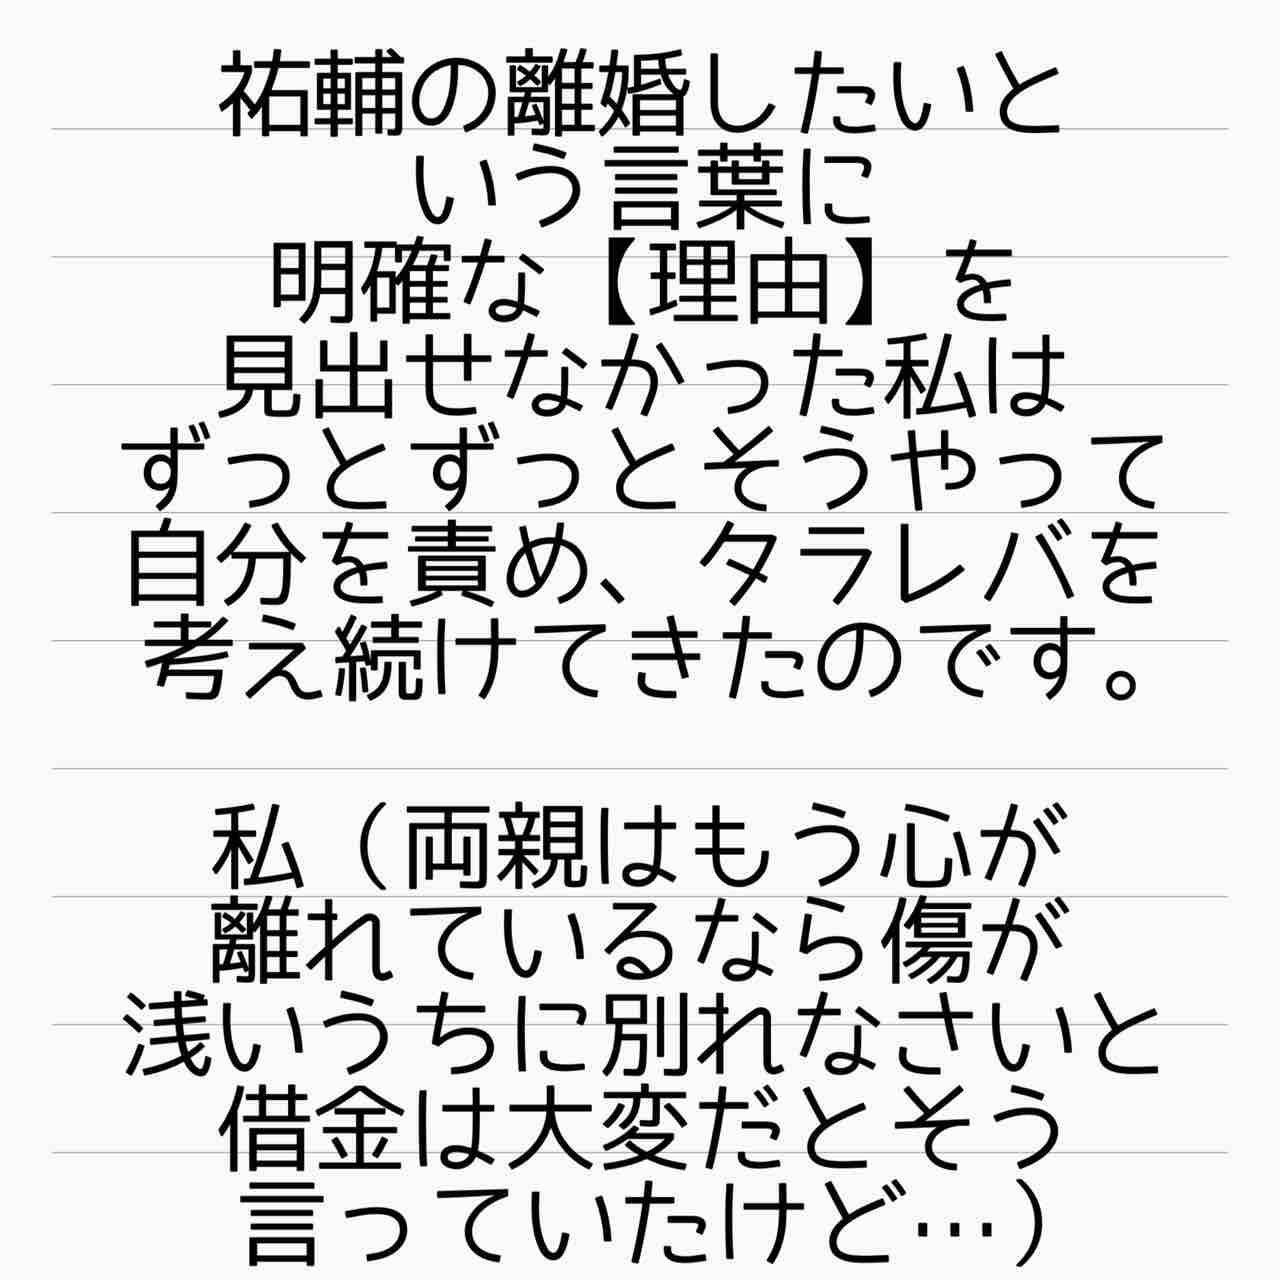 祐輔の離婚したいと
いう言葉に
明確な【理由】を
見出せなかった私は
ずっとずっとそうやって
自分を責め、タラレバを
考え続けてきたのです。
私（両親はもう心が
離れているなら傷が
浅いうちに別れなさいと
借金は大変だとそう
言っていたけど…）